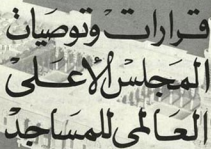 قرارات وتوصيات
المجلس الأعلى
العالمى للمساجد